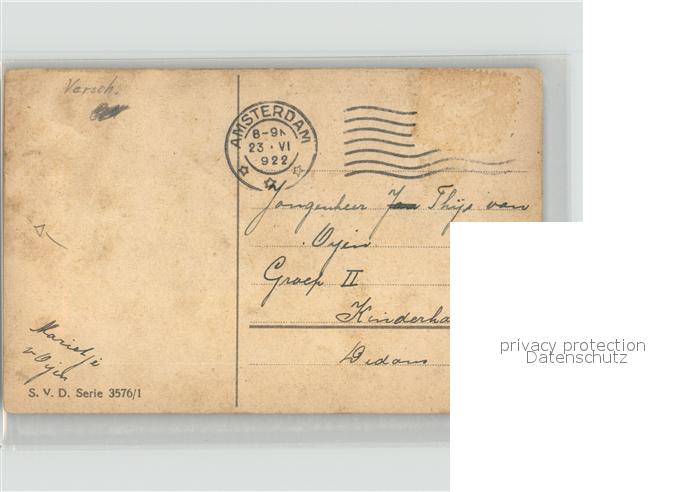 Versch.
AMSTERDAM
8-9N
23 · VI
922
Jongenheer Jan Thijs van
Oijen
Groep II
Kinderha
Marietje
v Oijen
S. V. D. Serie 3576/1
privacy protection
Datenschutz